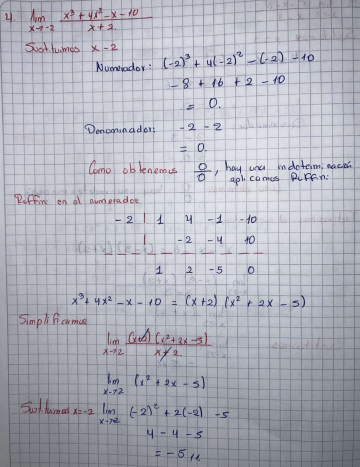 4. lim x→-2 (x³ + 4x² - x - 10) / (x + 2)
Sustituimos x - 2
Numerador: (-2)³ + 4(-2)² - (-2) - 10
- 8 + 16 + 2 - 10
= 0.
Denominador: -2 - 2
= 0.
Como obtenemos 0/0, hay una indeterminación
aplicamos Ruffini
Ruffini en el numerador
-2 | 1 4 -1 -10
| -2 -4 10
1 2 -5 0
x³ + 4x² - x - 10 = (x+2) (x² + 2x - 5)
Simplificamos
lim x→2 (x+2) (x² + 2x - 5) / x + 2
lim x→2 (x² + 2x - 5)
Sustituimos x = -2 lim x→-2 (-2)² + 2(-2) - 5
4 - 4 - 5
= -5 //